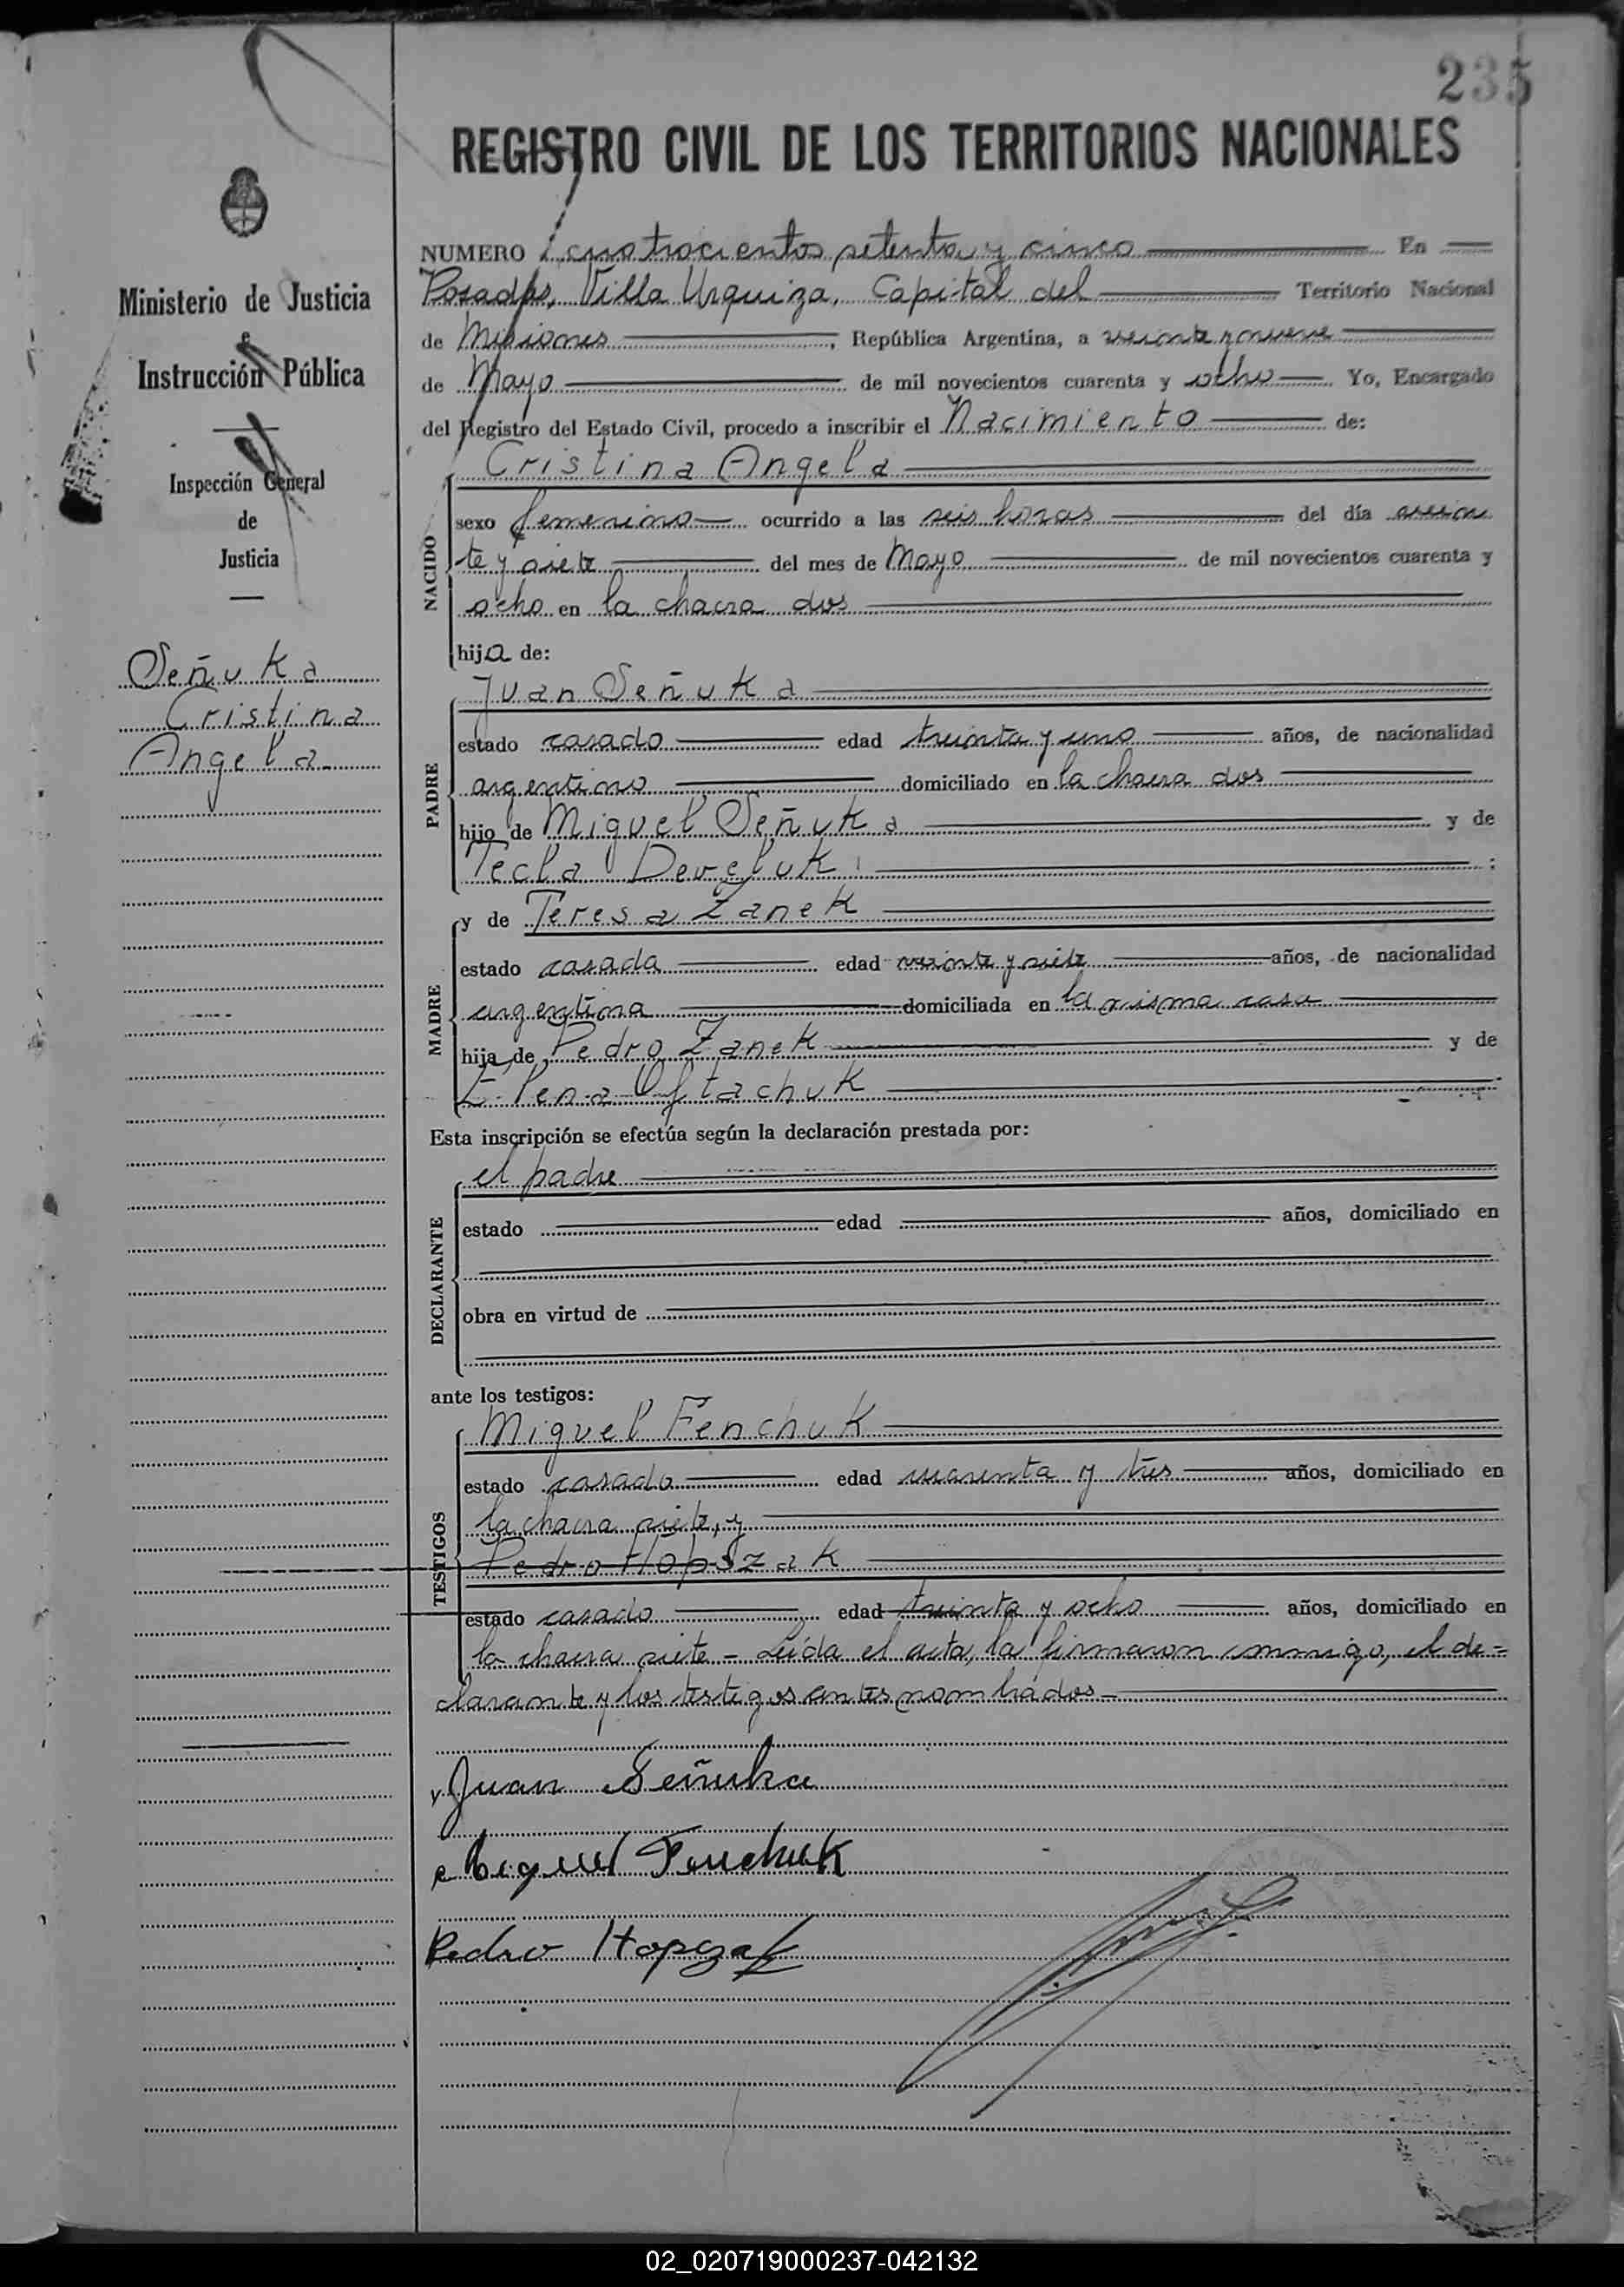 235
REGISTRO CIVIL DE LOS TERRITORIOS NACIONALES
Ministerio de Justicia
e
Instrucción Pública
Inspección General
de
Justicia
Señuka
Cristina
Angela
NUMERO cuatrocientos setenta y cinco En
Posadas, Villa Urquiza, Capital del Territorio Nacional
de Misiones, República Argentina, a veinte y nueve
de Mayo de mil novecientos cuarenta y ocho Yo, Encargado
del Registro del Estado Civil, procedo a inscribir el Nacimiento de:
NACIDO
Cristina Angela
sexo femenino ocurrido a las seis horas del día vein
te y siete del mes de Mayo de mil novecientos cuarenta y
ocho en la chacra dos
hija de:
PADRE
Juan Señuka
estado casado edad treinta y uno años, de nacionalidad
argentino domiciliado en la chacra dos
hijo de Miguel Señuka y de
Tecla :
MADRE
y de Teresa Zanek
estado casada edad veinte y siete años, de nacionalidad
argentina domiciliada en la misma casa
hija de Pedro Zanek y de
Elena
Esta inscripción se efectúa según la declaración prestada por:
DECLARANTE
el padre
estado edad años, domiciliado en
obra en virtud de
ante los testigos:
TESTIGOS
Miguel Fenchuk
estado casado edad cuarenta y tres años, domiciliado en
la chacra siete, y
Pedro Hopszak
estado casado edad treinta y ocho años, domiciliado en
la chacra siete - Leída el acta, la firmaron conmigo, el de=
clarante y los testigos antes nombrados -
Juan Señuka
Miguel Fenchuk
Pedro
02_020719000237-042132